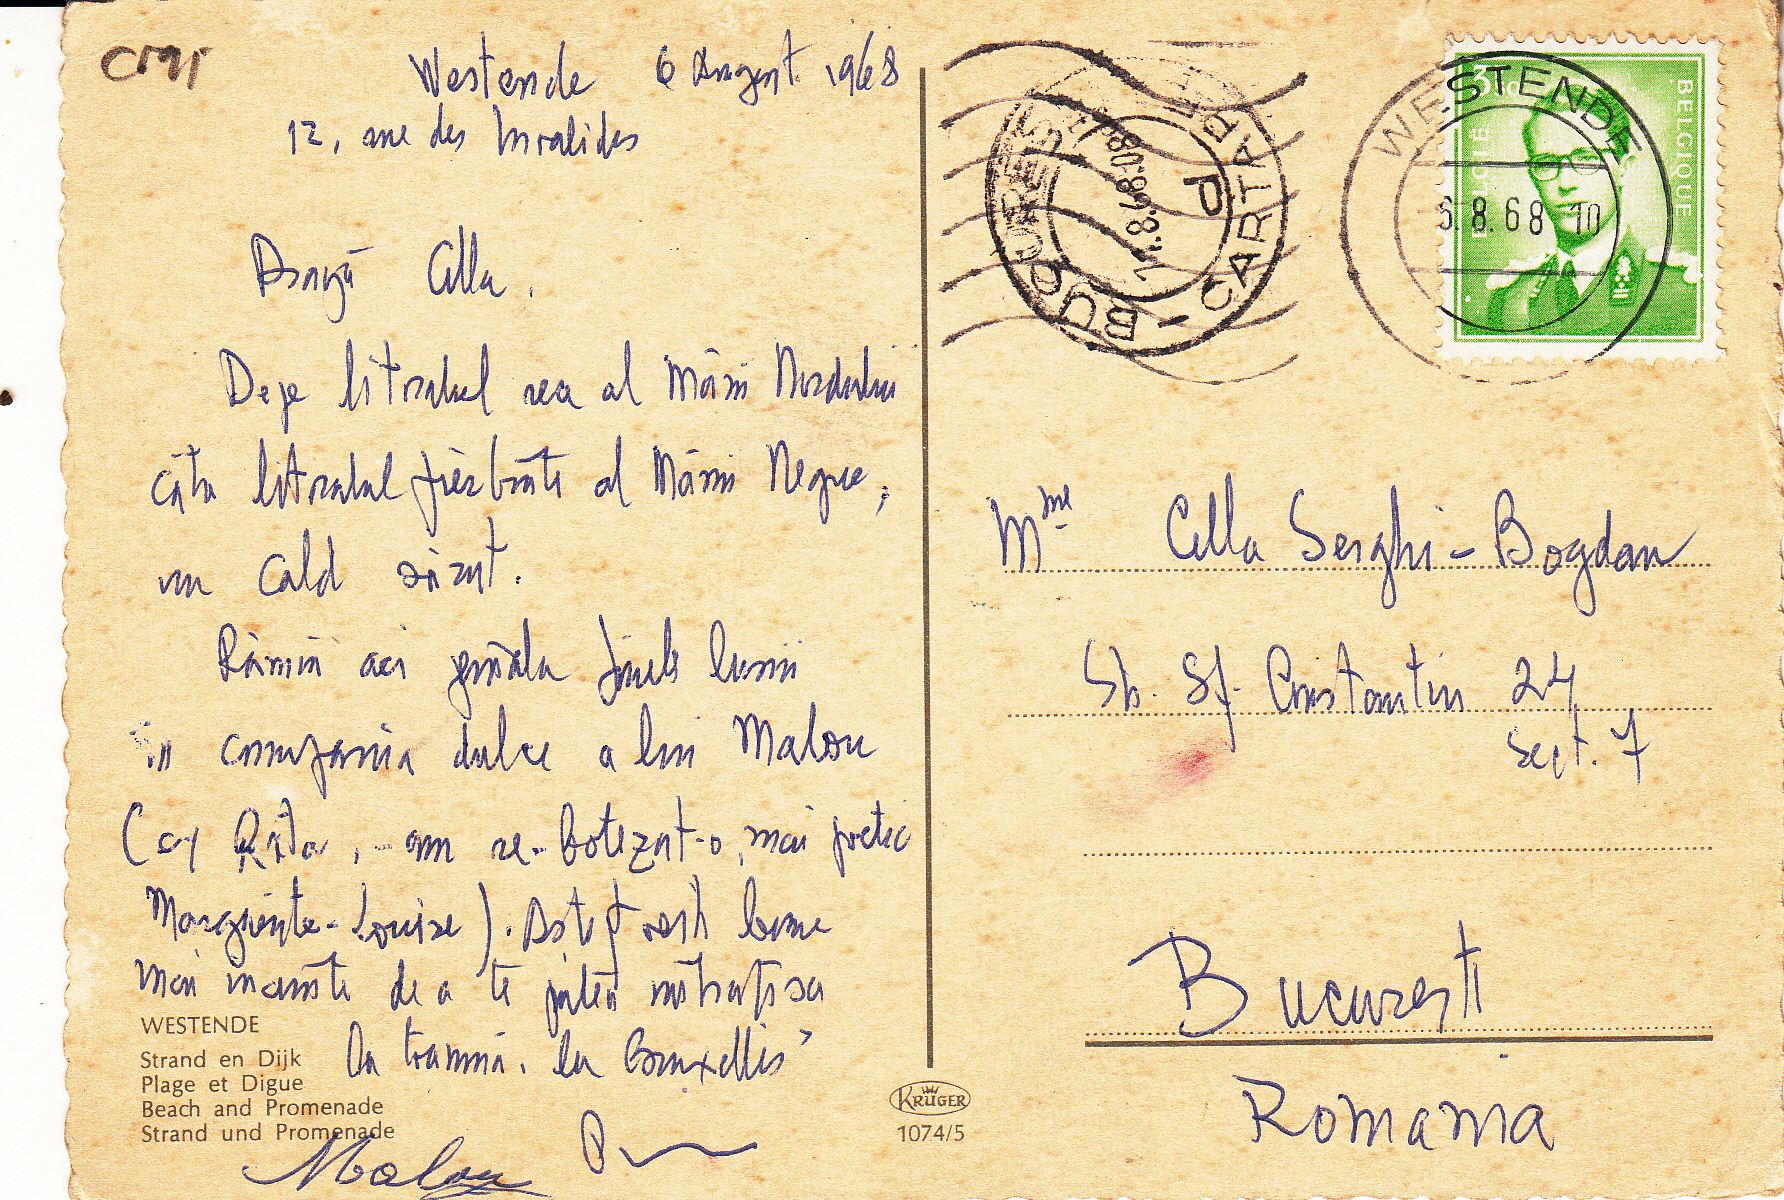 Westende 6 August 1968
12, ave des Invalides
Dragă Cella,
De pe litoralul rece al Mării Nordului
către litoralul fierbinte al Mării Negre,
un cald sărut.
Rămân aci până la finele lunii
în compania dulce a lui Malou
(ex Rita, - am re-botezat-o, mai poetic
Marguerite-Louise). Aștept vești bune
mai înainte de a te putea îmbrățișa
la toamnă, la Bruxelles
Malou
WESTENDE
Strand en Dijk
Plage et Digue
Beach and Promenade
Strand und Promenade
KRÜGER
1074/5
BUCUREȘTI - CARTARE
11.8.68.08
P
WESTENDE
6.8.68 10
BELGIË
BELGIQUE
Mme Cella Serghi-Bogdan
Sb. Sf. Constantin 24
Sect. 7
București
Romania